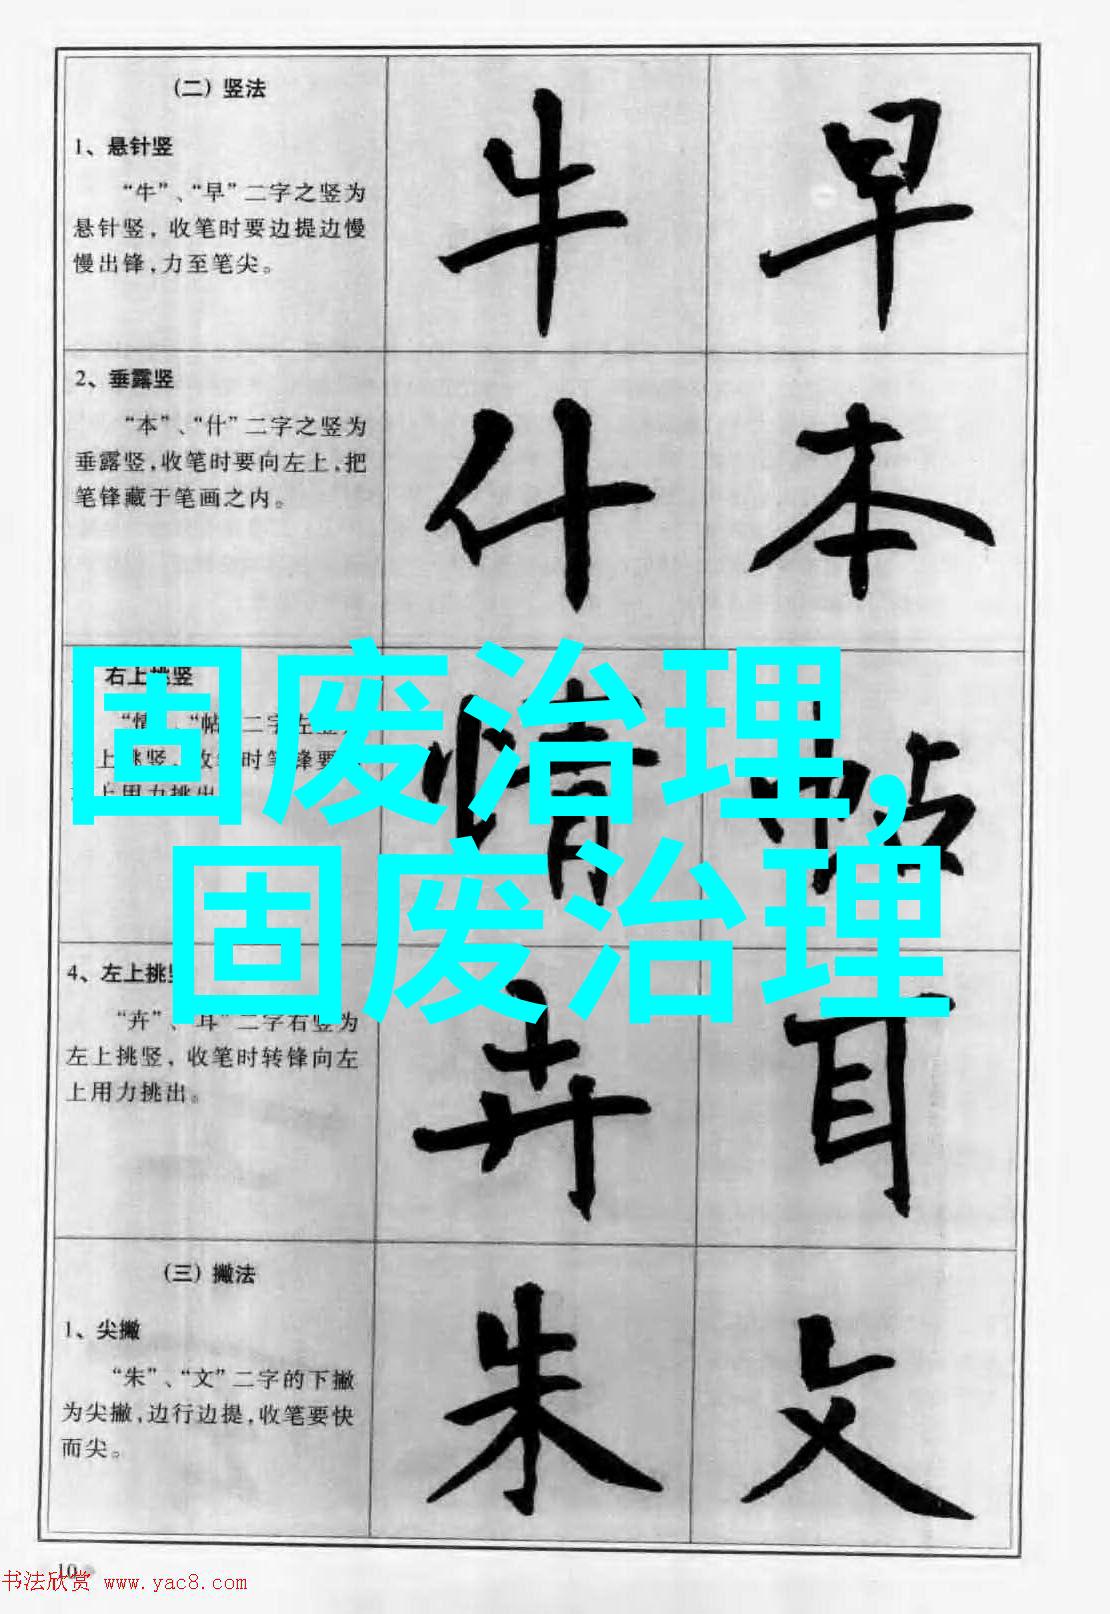 （二）竖法
1、悬针竖
“牛”、“早”二字之竖为
悬针竖，收笔时要边提边慢
慢出锋，力至笔尖。
牛 早
2、垂露竖
“本”、“什”二字之竖为
垂露竖，收笔时要向左上，把
笔锋藏于笔画之内。
什 本
右上挑竖
“情”、“帖”二字左竖
上挑竖，收笔时笔锋要
上用力挑出
情 帖
固废治理，
固废治理
4、左上挑竖
“卉”、“耳”二字右竖为
左上挑竖，收笔时转锋向左
上用力挑出。
卉 耳
（三）撇法
1、尖撇
“朱”、“文”二字的下撇
为尖撇，边行边提，收笔要快
而尖。
朱 文
10
书法欣赏 www.yac8.com